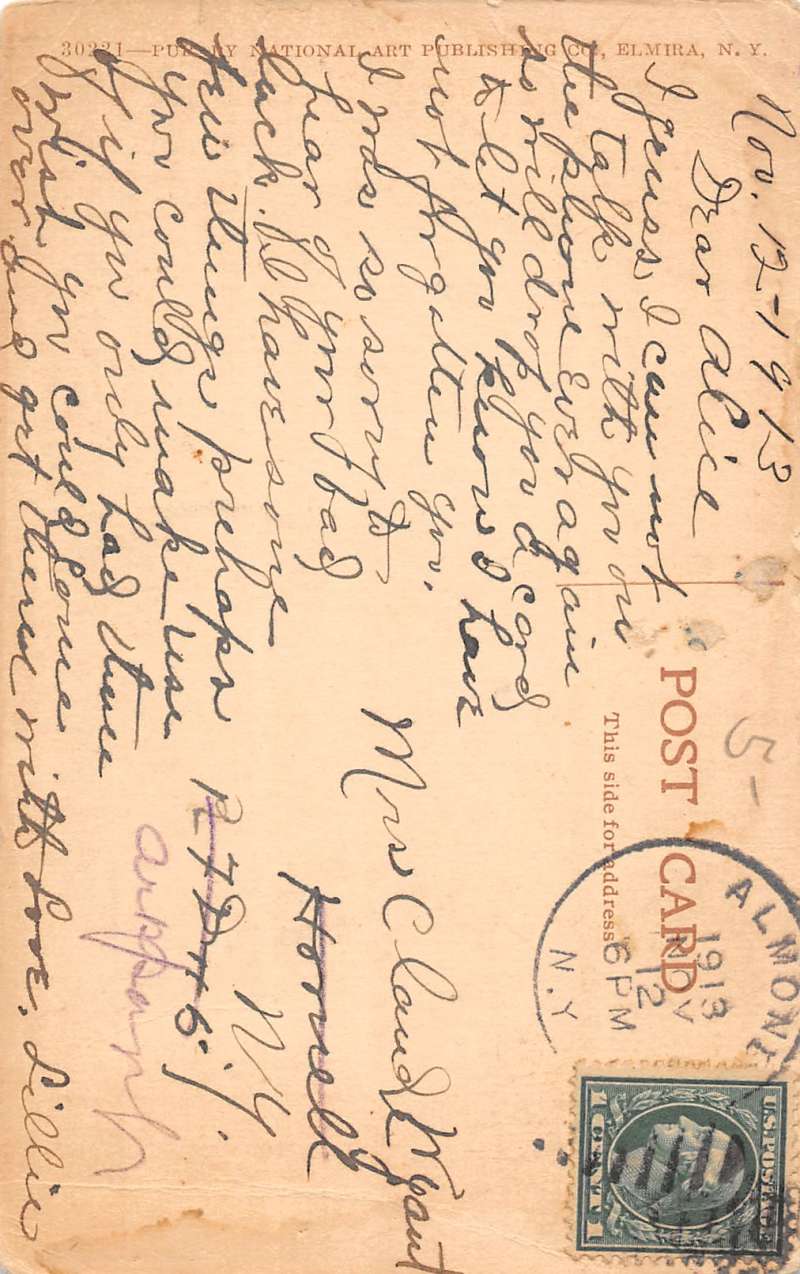 30221—PUB. BY NATIONAL ART PUBLISHING CO., ELMIRA, N. Y.
Nov. 12-1913
Dear Alice
I guess I can not
talk with you on
the phone ever again
so will drop you a card
to let you know I have
not forgotten you.
I was so sorry to
hear of your bad
luck. Ill have some
few things prehaps
you could make use
of if you only had them
wish you could come
over and get them with Love. Lillie
POST CARD
This side for address
5-
ALMOND
1913
NOV
12
6 PM
N.Y.
U.S. POSTAGE
1 CENT 1
Mrs Claud Wyant
Hornell
N.Y.
R F D # 6
arkport